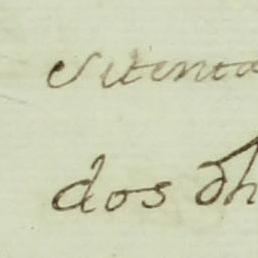 Sitenta
dos dh